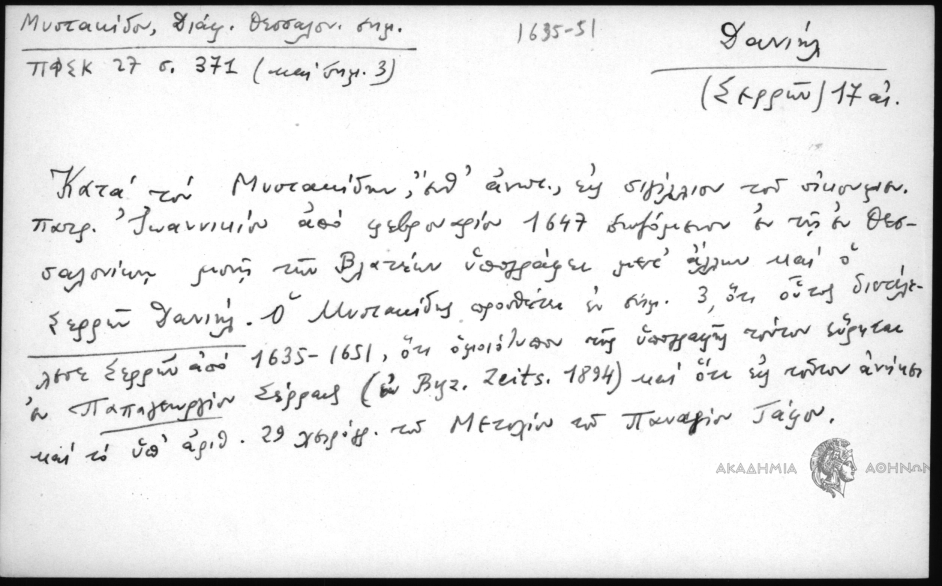 Μυστακίδου, Διάφ. Θεσσαλον. σημ.
ΠΦΣΚ 27 σ. 371 (καὶ σημ. 3)
1635-51
Δανιὴλ
(Σερρῶν) 17 αἰ.
Κατὰ τὸν Μυστακίδην, ἔνθ' ἀνωτ., εἰς σιγίλλιον τοῦ οἰκουμεν.
πατρ. Ἰωαννικίου ἀπὸ φεβρουαρίου 1647 σωζόμενον ἐν τῇ ἐν Θεσ-
σαλονίκῃ μονῇ τῶν Βλατέων ὑπογράφει μετ' ἄλλων καὶ ὁ
Σερρῶν Δανιήλ. Ὁ Μυστακίδης προσθέτει ἐν σημ. 3, ὅτι οὗτος διετέλε-
σε Σερρῶν ἀπὸ 1635-1651, ὅτι ὁμοιότυπον τῆς ὑπογραφῆς τούτου εὕρηται
ἐν Παπαγεωργίου Σέρρας (ἐν Byz. Zeits. 1894) καὶ ὅτι εἰς τοῦτον ἀνήκει
καὶ τὸ ὑπ' ἀριθ. 29 χειρόγρ. τοῦ Μετοχίου τοῦ Παναγίου Τάφου.
ΑΚΑΔΗΜΙΑ ΑΘΗΝΩΝ